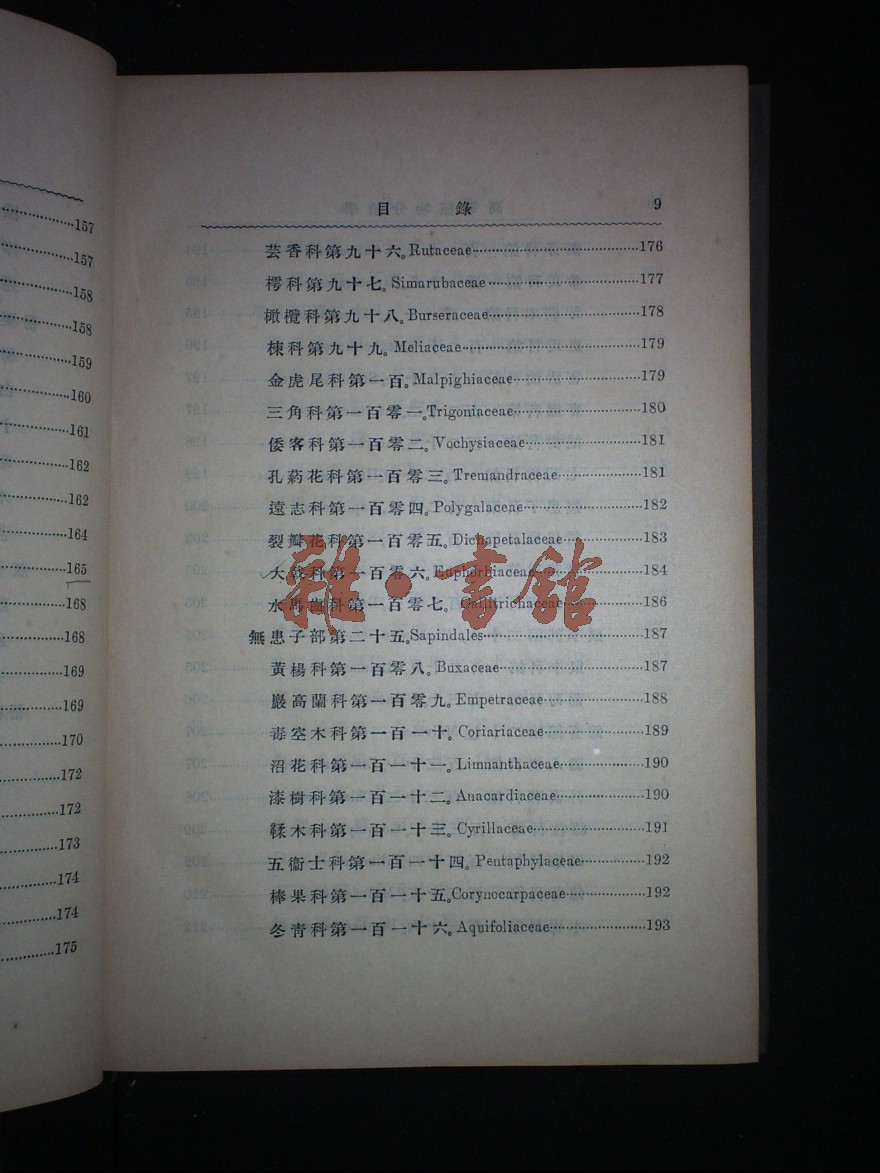 157
157
158
158
159
160
161
162
162
164
165
168
168
169
169
170
172
172
173
174
174
175
目錄 9
芸香科第九十六。Rutaceae 176
樗科第九十七。Simarubaceae 177
橄欖科第九十八。Burseraceae 178
楝科第九十九。Meliaceae 179
金虎尾科第一百。Malpighiaceae 179
三角科第一百零一。Trigoniaceae 180
倭客科第一百零二。Vochysiaceae 181
孔葯花科第一百零三。Tremandraceae 181
遠志科第一百零四。Polygalaceae 182
裂瓣花科第一百零五。Dichapetalaceae 183
大戟科第一百零六。Euphorbiaceae 184
水馬齒科第一百零七。Callitrichaceae 186
無患子部第二十五。Sapindales 187
黃楊科第一百零八。Buxaceae 187
巖高蘭科第一百零九。Empetraceae 188
毒空木科第一百一十。Coriariaceae 189
沼花科第一百一十一。Limnanthaceae 190
漆樹科第一百一十二。Anacardiaceae 190
鞣木科第一百一十三。Cyrillaceae 191
五衞士科第一百一十四。Pentaphylaceae 192
棒果科第一百一十五。Corynocarpaceae 192
冬靑科第一百一十六。Aquifoliaceae 193
雜·書館